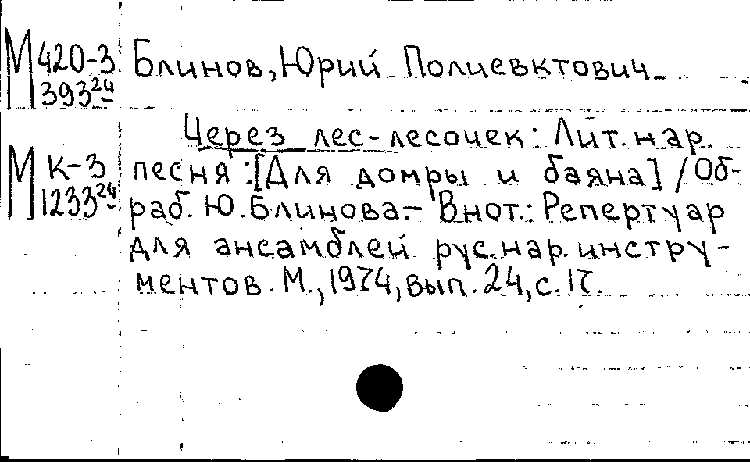 М 420-3 Блинов, Юрий Полиевктович
393 24
Через лес-лесочек: Лит. нар.
М К-3 песня: [Для домры и баяна] / Об-
1233 24 раб. Ю. Блинова.- В нот.: Репертуар
для ансамблей рус. нар. инстру-
ментов. М., 1974, вып. 24, с. 17.